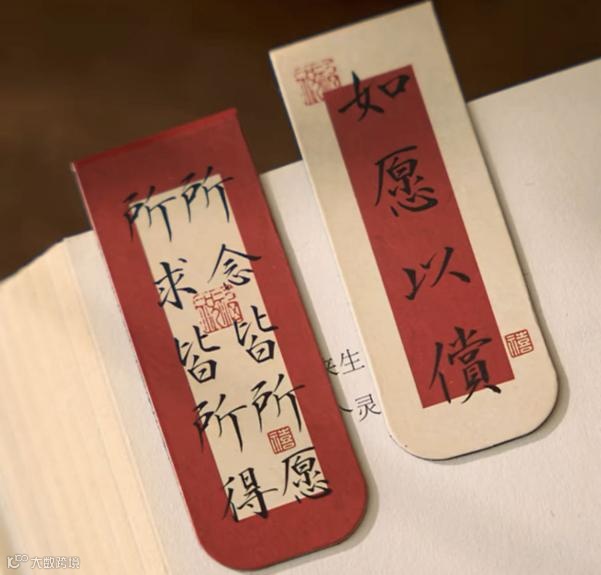 所念皆所愿
所求皆所得
如愿以偿
禧
禧
生
灵
大数跨境